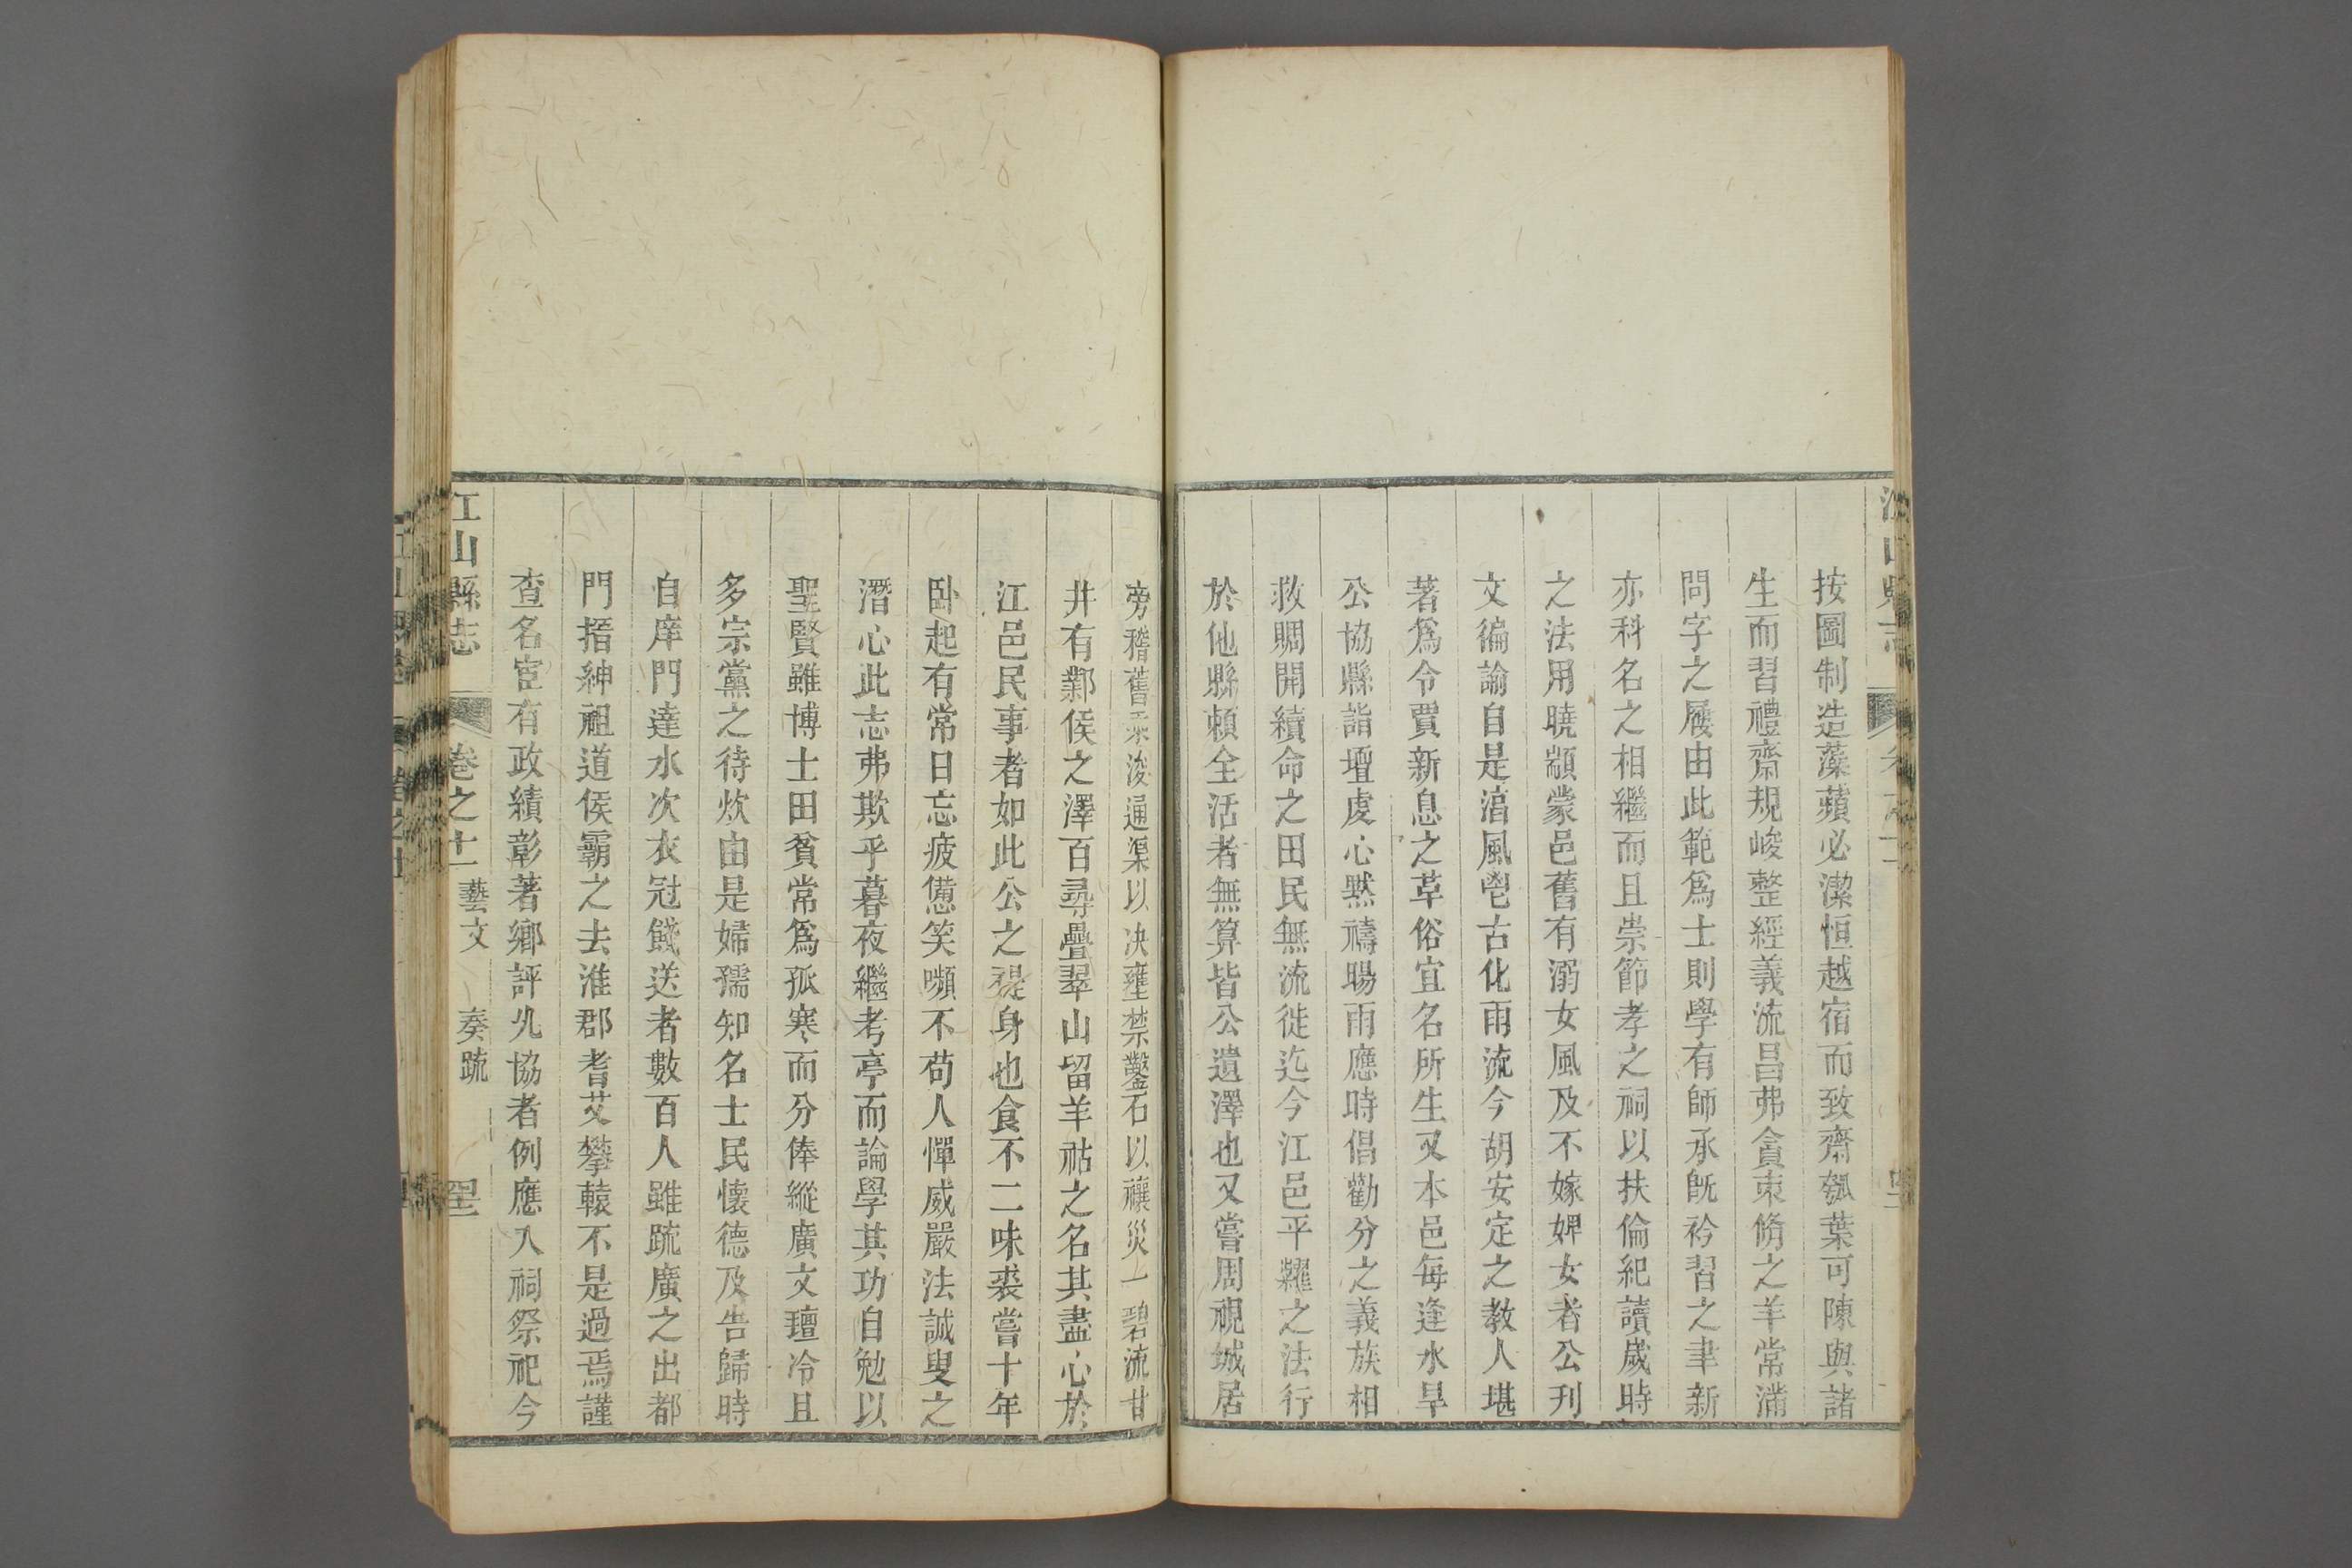 按圖制造藻蘋必潔恒越宿而致齋瓠葉可陳與諸
生而習禮齋規峻整經義流昌弗貪束脩之羊常滿
問字之屨由此範為士則學有師承既衿習之聿新
亦科名之相繼而且崇節孝之祠以扶倫紀讀歲時
之法用曉顓蒙邑舊有溺女風及不嫁婢女者公刊
文徧諭自是滀風鬯古化雨流今胡安定之教人堪
著為令賈新息之草俗宜名所生又本邑每逢水旱
公協縣詣壇虔心默禱暘雨應時倡勸分之義族相
救賙開續命之田民無流徙迄今江邑平糶之法行
於他縣頼全活者無算皆公遺澤也又嘗周視城居
旁稽舊汞浚通渠以决壅禁鑿石以禳災一碧流甘
井有鄴侯之澤百尋疊翠山留羊祜之名其盡心於
江邑民事者如此公之禔身也食不二味裘嘗十年
卧起有常日忘疲憊笑嚬不苟人憚威嚴法誠叟之
潛心此志弗欺乎暮夜繼考亭而論學其功自勉以
聖賢雖博士田貧常為孤寒而分俸縱廣文氊冷且
多宗黨之待炊由是婦孺知名士民懷德及告歸時
自庠門達水次衣冠餞送者數百人雖䟽廣之出都
門搢紳祖道侯霸之去淮郡耆艾攀轅不是過焉謹
查名宦有政績彰著鄉評允協者例應入祠祭祀今
江山縣志 卷之十一 藝文 奏䟽 罜